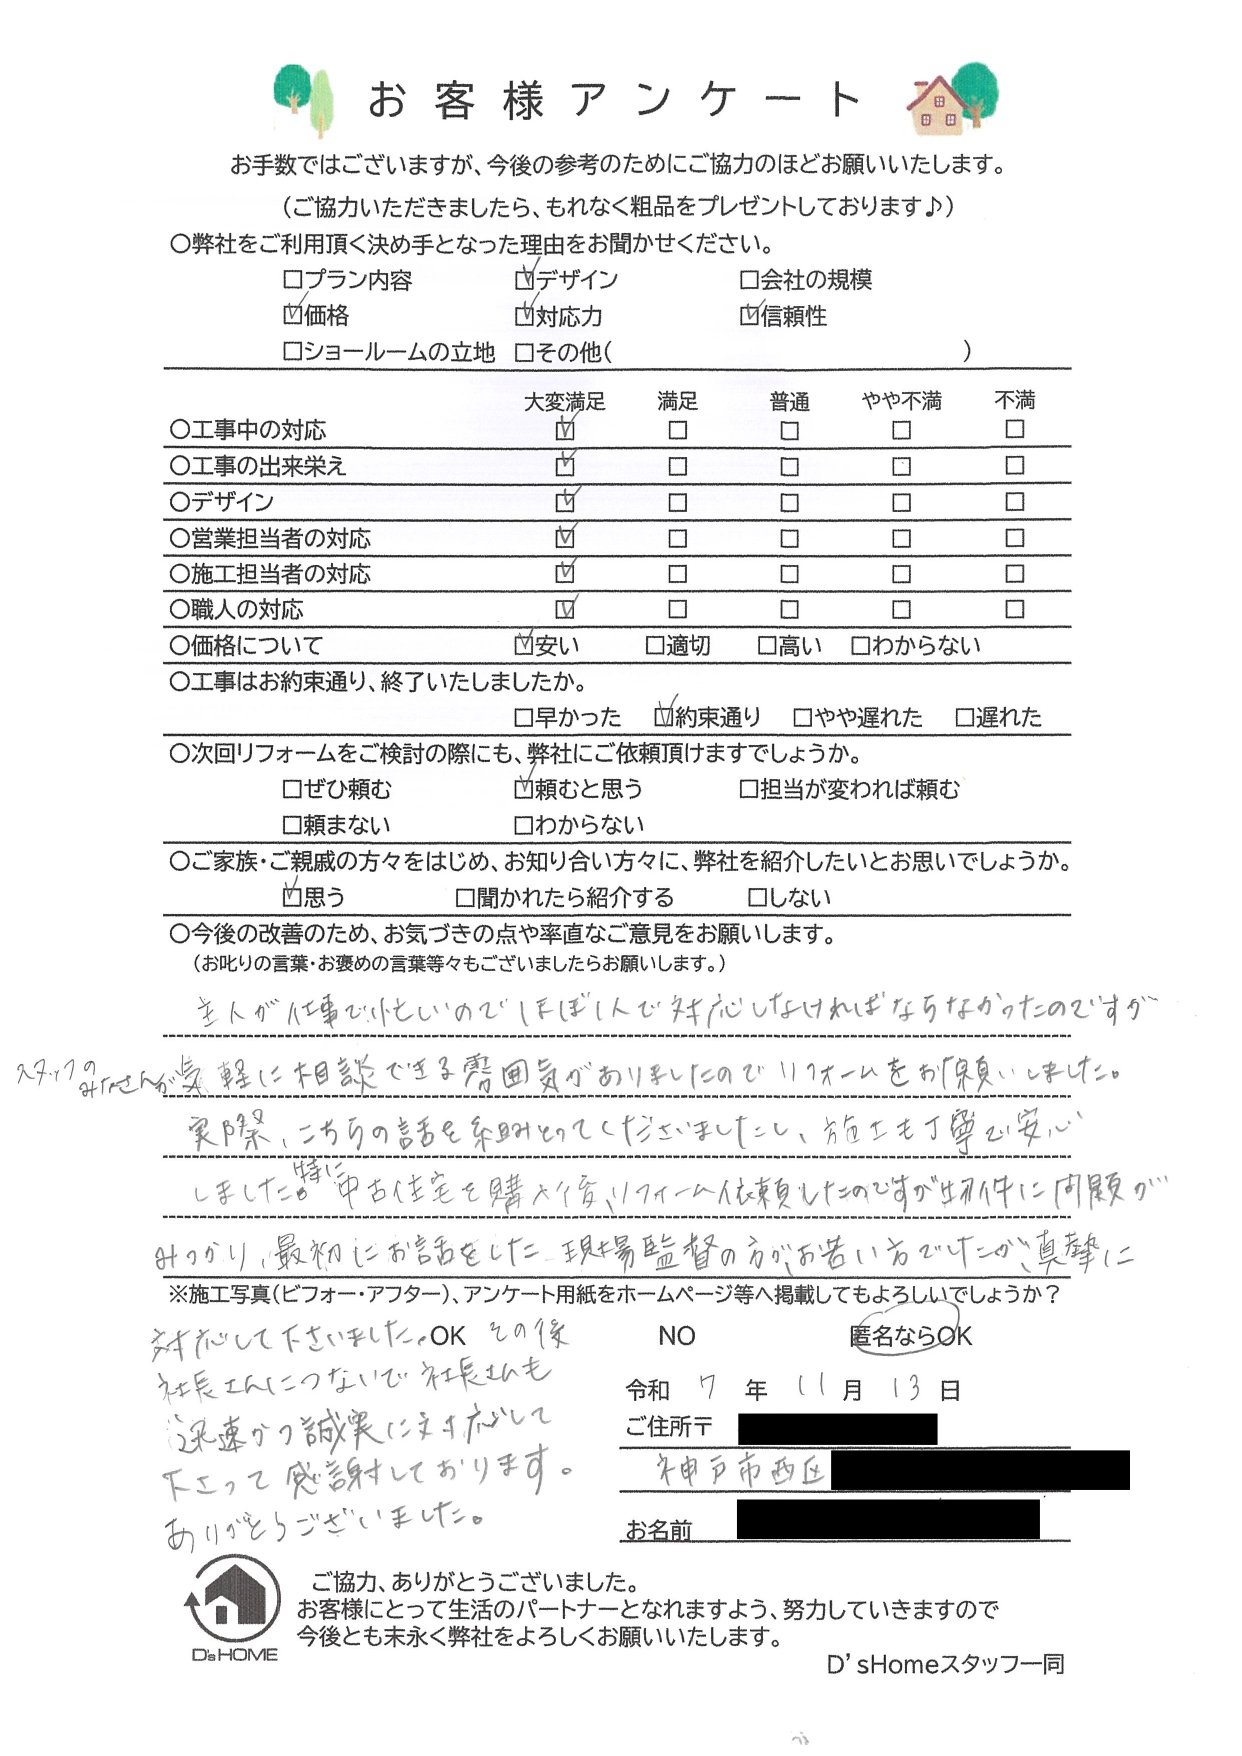 お客様アンケート
お手数ではございますが、今後の参考のためにご協力のほどお願いいたします。
（ご協力いただきましたら、もれなく粗品をプレゼントしております♪）
〇弊社をご利用頂く決め手となった理由をお聞かせください。
□プラン内容 ☑デザイン □会社の規模
☑価格 ☑対応力 ☑信頼性
□ショールームの立地 □その他( )
大変満足 満足 普通 やや不満 不満
〇工事中の対応 ☑ □ □ □ □
〇工事の出来栄え ☑ □ □ □ □
〇デザイン ☑ □ □ □ □
〇営業担当者の対応 ☑ □ □ □ □
〇施工担当者の対応 ☑ □ □ □ □
〇職人の対応 ☑ □ □ □ □
〇価格について ☑安い □適切 □高い □わからない
〇工事はお約束通り、終了いたしましたか。
□早かった ☑約束通り □やや遅れた □遅れた
〇次回リフォームをご検討の際にも、弊社にご依頼頂けますでしょうか。
□ぜひ頼む ☑頼むと思う □担当が変われば頼む
□頼まない □わからない
〇ご家族・ご親戚の方々をはじめ、お知り合い方々に、弊社を紹介したいとお思いでしょうか。
☑思う □聞かれたら紹介する □しない
〇今後の改善のため、お気づきの点や率直なご意見をお願いします。
（お叱りの言葉・お褒めの言葉等々もございましたらお願いします。）
主人が仕事で忙しいのでほぼ1人で対応しなければならなかったのですが
スタッフのみなさんが気軽に相談できる雰囲気がありましたのでリフォームをお願いしました。
実際、こちらの話を組みとってくださいましたし、施工も丁寧で安心
しました。特に中古住宅を購入後、リフォーム依頼したのですが物件に問題が
みつかり、最初にお話をした現場監督の方が、お若い方でしたが、真摯に
※施工写真（ビフォー・アフター）、アンケート用紙をホームページ等へ掲載してもよろしいでしょうか？
OK NO 匿名ならOK
対応して下さいました。その後
社長さんにつないで社長さんも
迅速かつ誠実に対応して
下さって感謝しております。
ありがとうございました。
令和 7 年 11 月 13 日
ご住所〒
神戸市西区
お名前
ご協力、ありがとうございました。
お客様にとって生活のパートナーとなれますよう、努力していきますので
今後とも末永く弊社をよろしくお願いいたします。
D's HOME
D'sHomeスタッフ一同